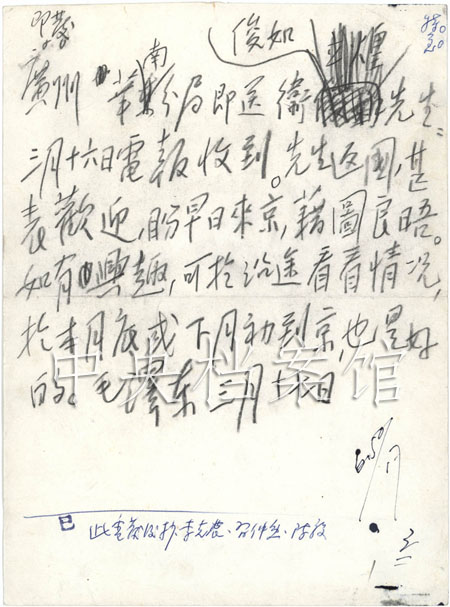 即發
特急
俊如
廣州 華南分局即送衛先生:
三月十六日電報收到。先生返國,甚
表歡迎,盼早日來京,藉圖良晤。
如有興趣,可於沿途看看情况,
於本月底或下月初到京,也是好
的。毛澤東 三月十八日
中央档案馆
此電發後抄李克農、習仲勛、